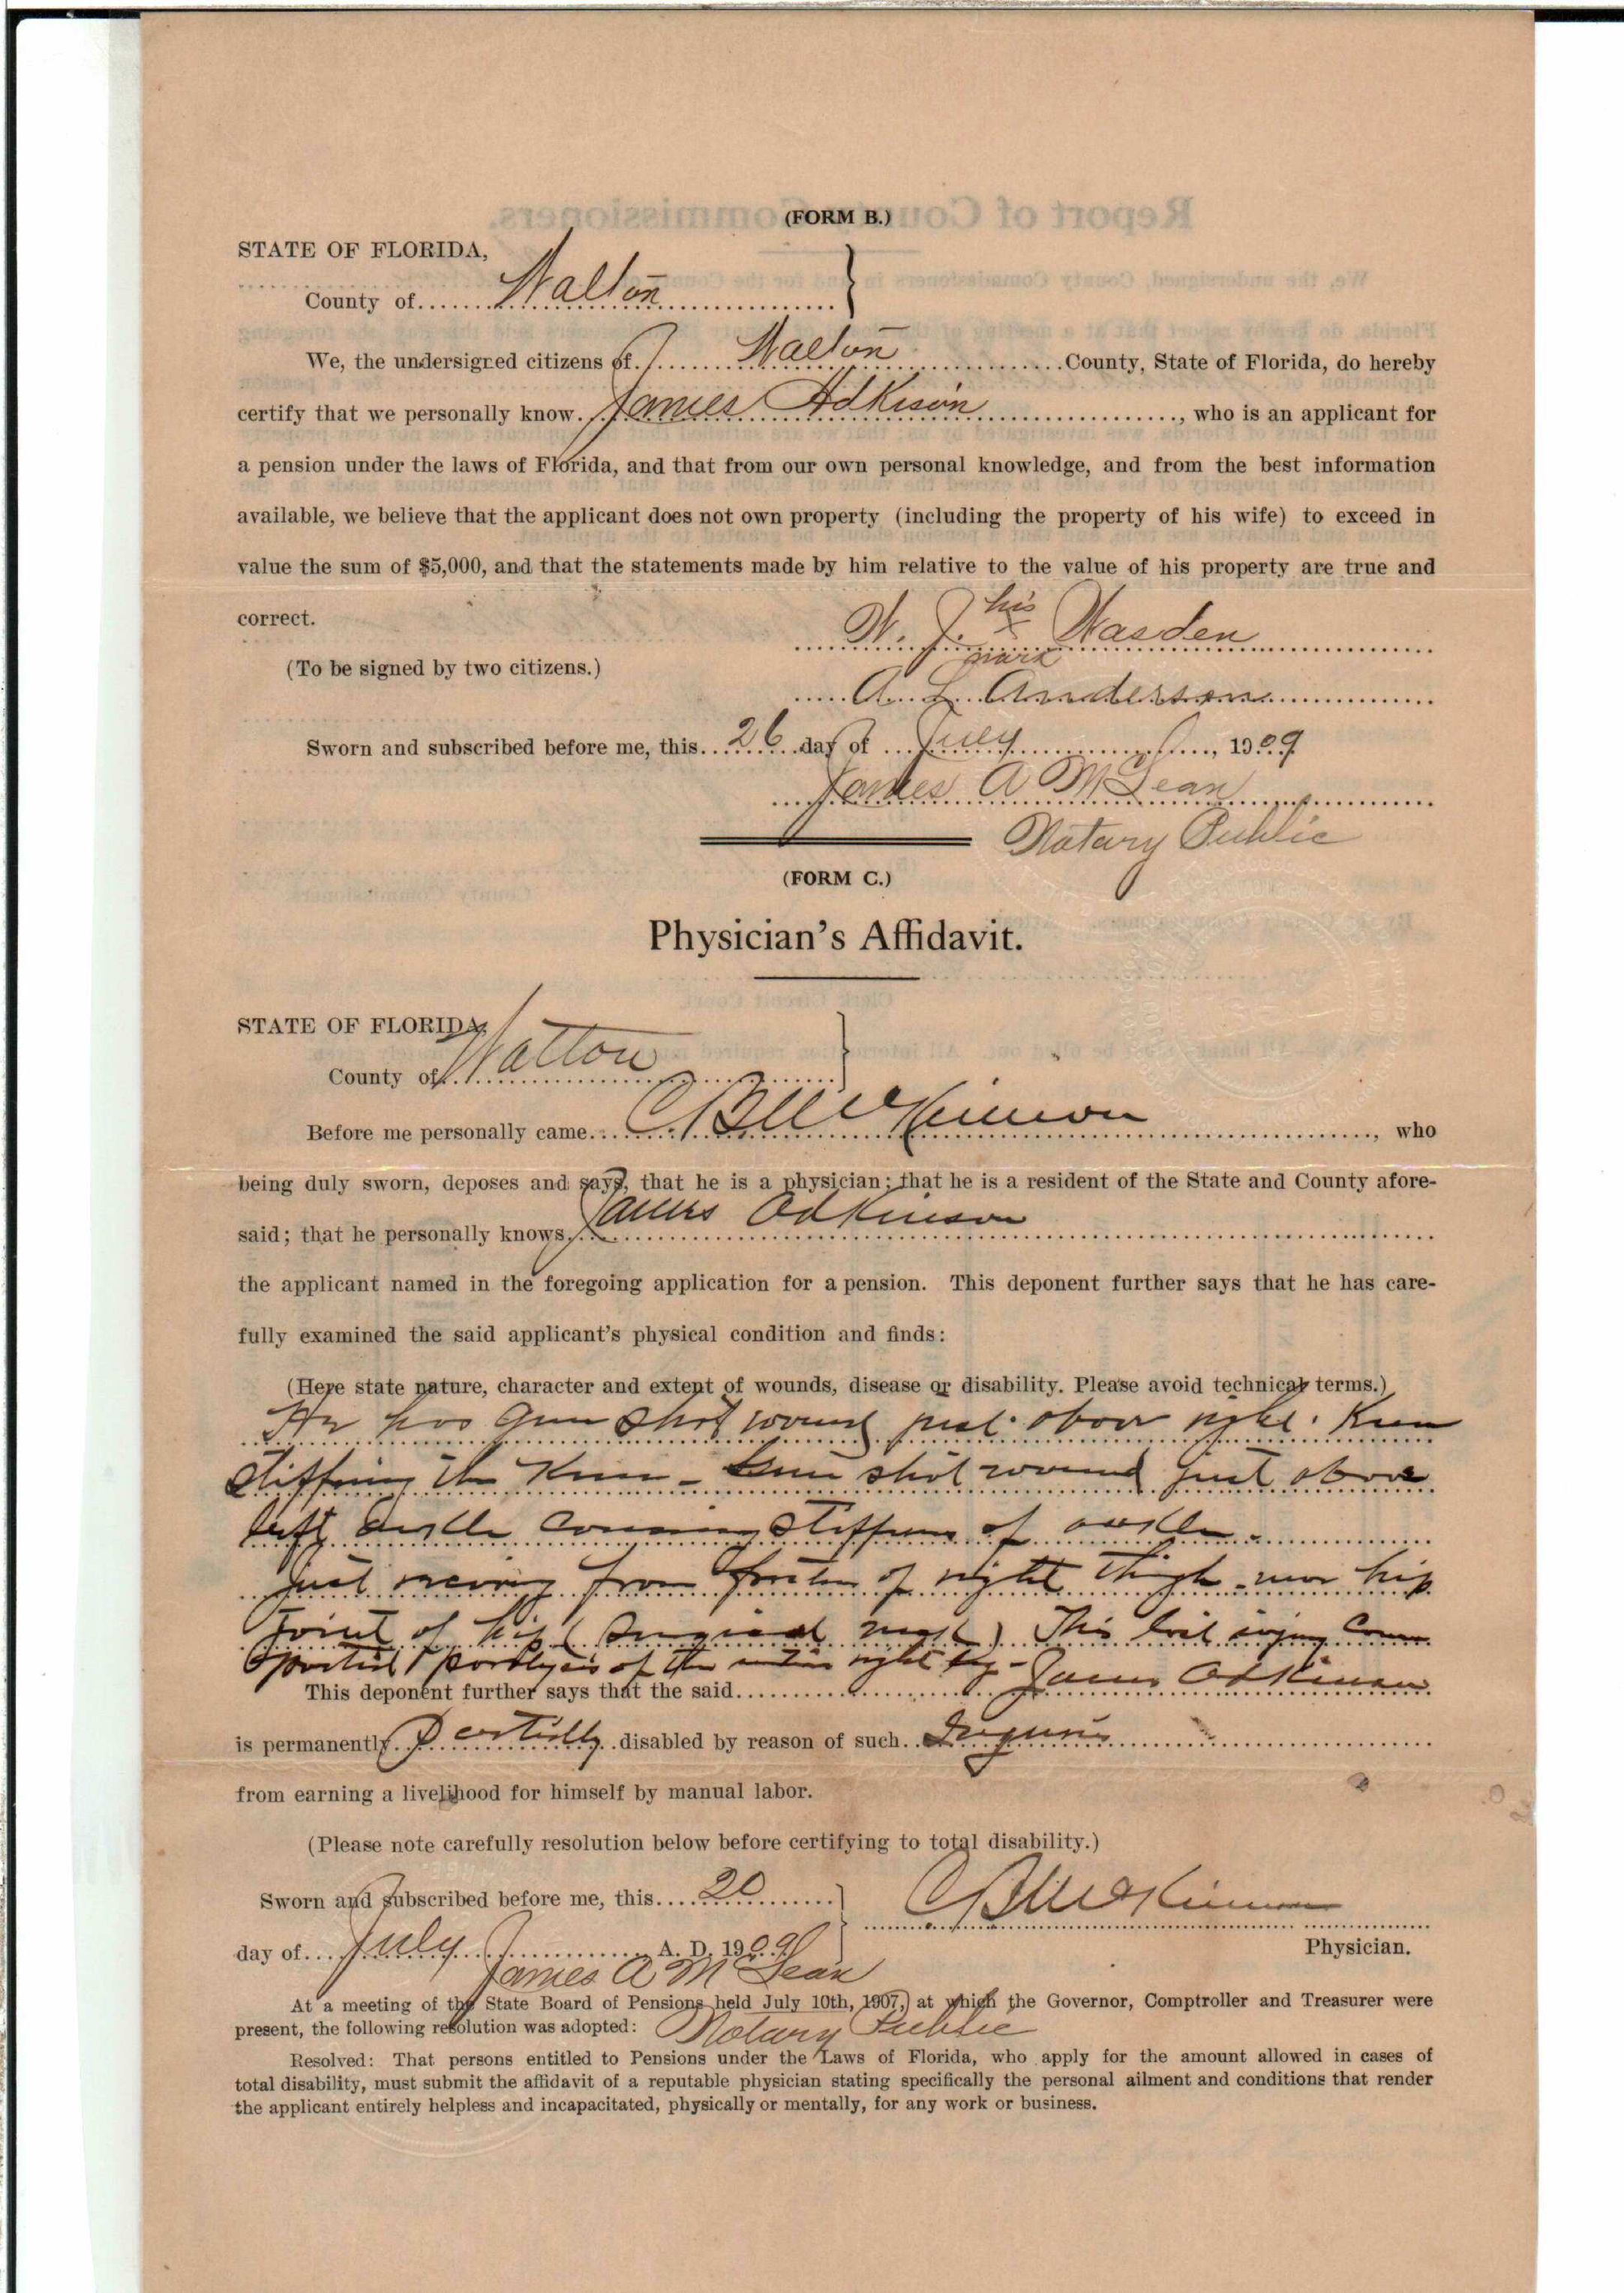 (FORM B.)
STATE OF FLORIDA,
County of Walton
We, the undersigned citizens of Walton County, State of Florida, do hereby
certify that we personally know James Adkison, who is an applicant for
a pension under the laws of Florida, and that from our own personal knowledge, and from the best information
available, we believe that the applicant does not own property (including the property of his wife) to exceed in
value the sum of $5,000, and that the statements made by him relative to the value of his property are true and
correct.
W. J. his x mark Wasden
(To be signed by two citizens.)
A. L. Anderson
Sworn and subscribed before me, this 26 day of July, 1909
James A McLean
Notary Public
(FORM C.)
Physician's Affidavit.
STATE OF FLORIDA,
County of Walton
Before me personally came C B McKinnon, who
being duly sworn, deposes and says, that he is a physician; that he is a resident of the State and County afore-
said; that he personally knows James Adkinson
the applicant named in the foregoing application for a pension. This deponent further says that he has care-
fully examined the said applicant's physical condition and finds:
(Here state nature, character and extent of wounds, disease or disability. Please avoid technical terms.)
He has Gun Shot wound just above right Knee
Stiffning the Knee - Gun shot wound just above
left Ankle Stiffness of ankle -
Just from of right thigh near hip
Joint of hip (Surgical neck) This last injury
partial paralysis of the entire right leg -
This deponent further says that the said James Adkinson
is permanently Partially disabled by reason of such Injuries
from earning a livelihood for himself by manual labor.
(Please note carefully resolution below before certifying to total disability.)
Sworn and subscribed before me, this 20
C B McKinnon
day of July A. D. 1909
Physician.
James A McLean
At a meeting of the State Board of Pensions held July 10th, 1907, at which the Governor, Comptroller and Treasurer were
present, the following resolution was adopted:
Notary Public
Resolved: That persons entitled to Pensions under the Laws of Florida, who apply for the amount allowed in cases of
total disability, must submit the affidavit of a reputable physician stating specifically the personal ailment and conditions that render
the applicant entirely helpless and incapacitated, physically or mentally, for any work or business.